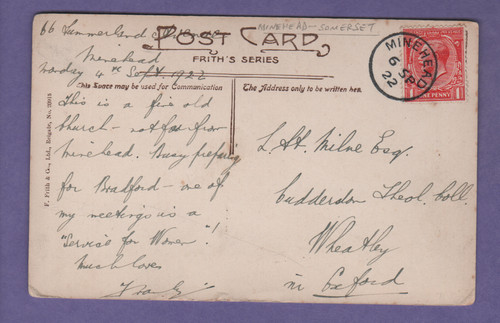 66 Summerland
MINEHEAD - SOMERSET
Minehead
Monday 4th Sept. 1922
POST CARD
FRITH'S SERIES
This Space may be used for Communication
The Address only to be written here.
This is a fine old
church - not far from
Minehead. Busy preparing
for Bradford - one of
my meetings is a
"Service for Women"!
Much love
F. Frith & Co., Ltd., Reigate, No.
MINEHEAD
6 SP
22
1 ONE PENNY 1
L. St. Milne Esq.
Cuddesdon Theol. Coll.
Wheatley
nr Oxford